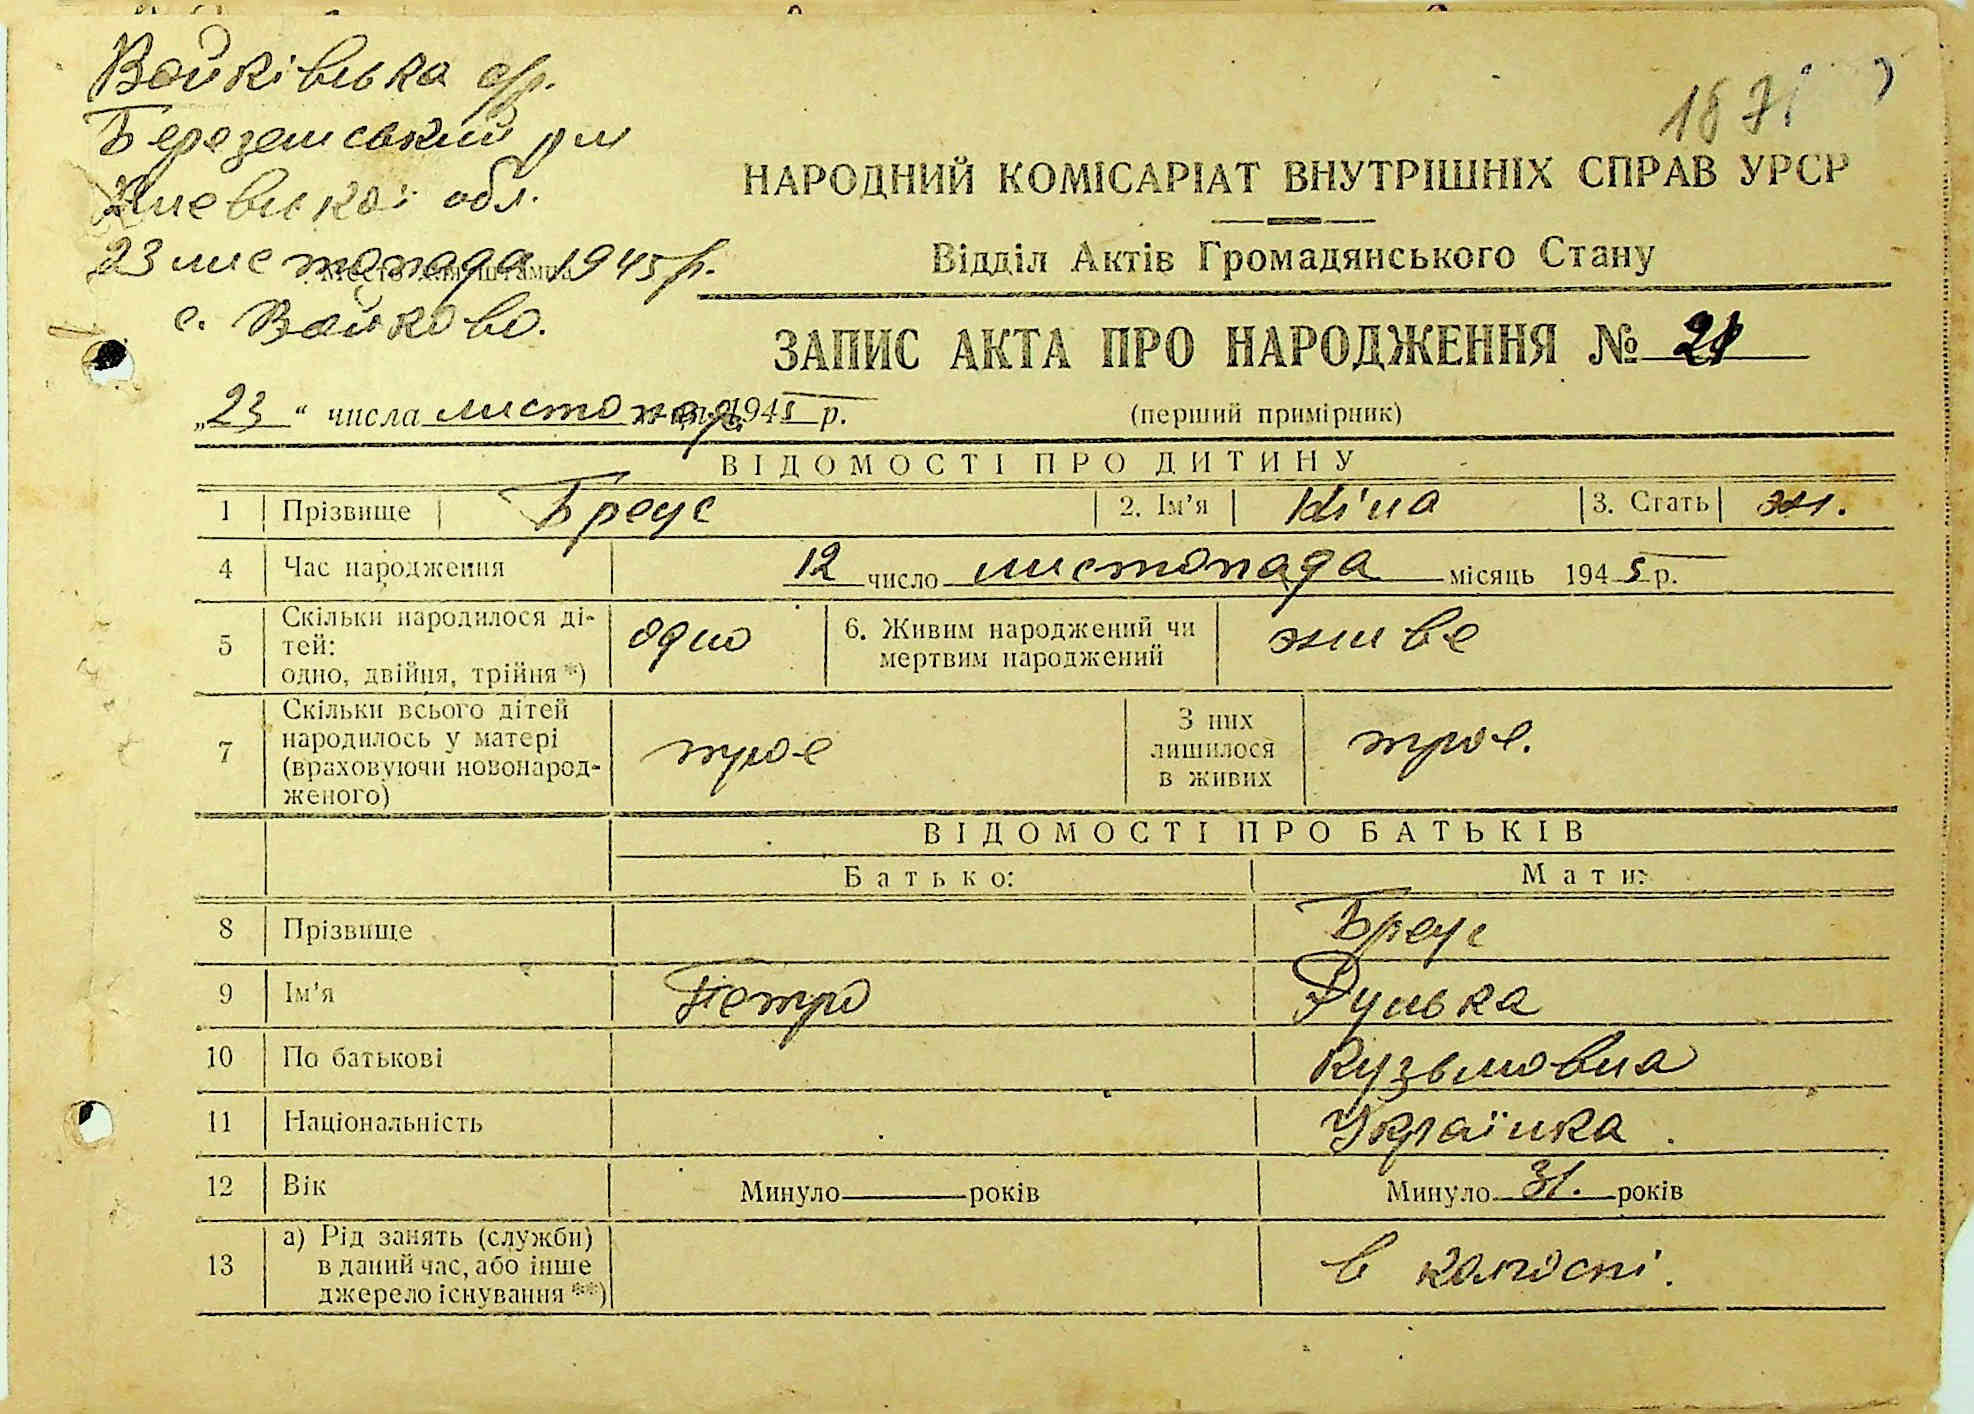 Войківська с/р.
Березанський р-н
Київської обл.
23 листопада 1945 р.
с. Войково.
187
НАРОДНИЙ КОМІСАРІАТ ВНУТРІШНІХ СПРАВ УРСР
Відділ Актів Громадянського Стану
ЗАПИС АКТА ПРО НАРОДЖЕННЯ №
„23“ числа листопада 1945 р. (перший примірник)
ВІДОМОСТІ ПРО ДИТИНУ
1 Прізвище Бреус 2. Ім'я Ніна 3. Стать ж.
4 Час народження 12 число листопада місяць 1945 р.
5 Скільки народилося ді-
тей:
одно, двійня, трійня *) одно 6. Живим народжений чи
мертвим народжений живе
7 Скільки всього дітей
народилось у матері
(враховуючи новонарод-
женого) троє З них
лишилося
в живих троє.
ВІДОМОСТІ ПРО БАТЬКІВ
Батько: Мати:
8 Прізвище Бреус
9 Ім'я Петро Дунька
10 По батькові Кузьмовна
11 Національність Українка.
12 Вік Минуло років Минуло 31. років
13 а) Рід занять (служби)
в даний час, або інше
джерело існування **) в колгоспі.